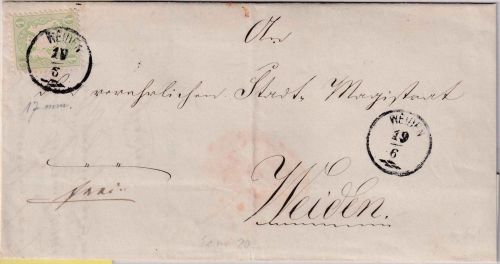 WEIDEN
19
6
An
verehrlichen Stadt Magistrat
17 mm.
WEIDEN
19
6
frei.
Weiden.